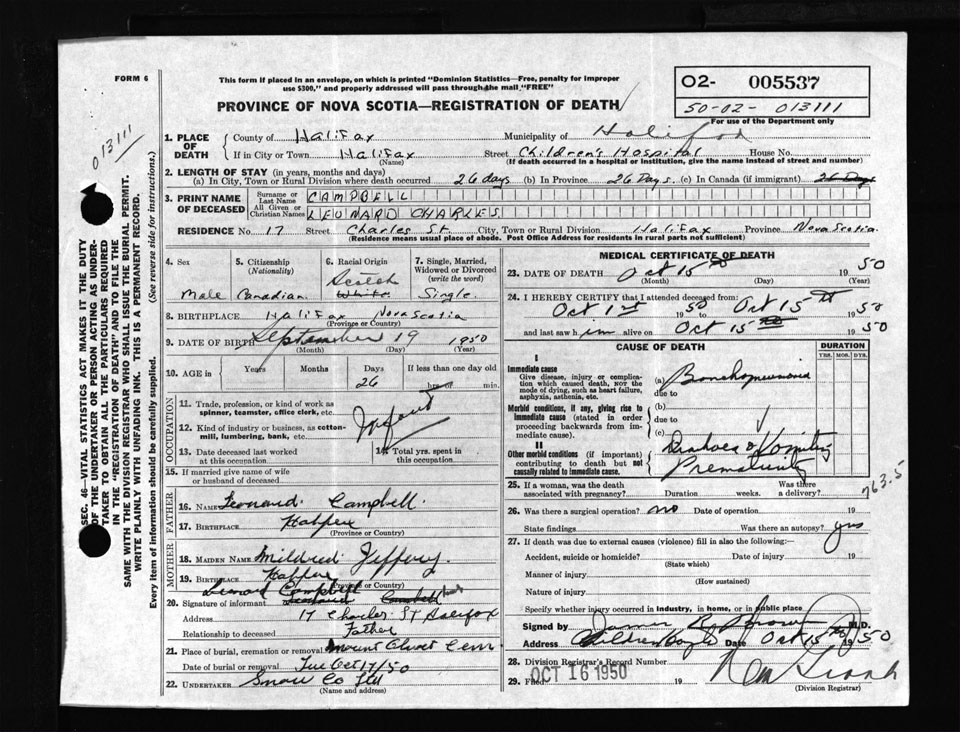 FORM 6
This form if placed in an envelope, on which is printed "Dominion Statistics—Free, penalty for improper
use $300," and properly addressed will pass through the mail "FREE"
O2- 005537
50-02- 013111
For use of the Department only
PROVINCE OF NOVA SCOTIA—REGISTRATION OF DEATH
013111
1. PLACE OF DEATH
County of Halifax Municipality of
If in City or Town Halifax Street Children's Hospital House No.
(Name) (If death occurred in a hospital or institution, give the name instead of street and number)
2. LENGTH OF STAY (in years, months and days)
(a) In City, Town or Rural Division where death occurred 26 days (b) In Province 26 Days (c) In Canada (if immigrant) 26 Days
3. PRINT NAME OF DECEASED
Surname or Last Name CAMPBELL
All Given or Christian Names LEONARD CHARLES
RESIDENCE No 17 Street Charles St. City, Town or Rural Division Halifax Province Nova Scotia
(Residence means usual place of abode. Post Office Address for residents in rural parts not sufficient)
4. Sex
Male
5. Citizenship
(Nationality)
Canadian
6. Racial Origin
Scotch
White
7. Single, Married,
Widowed or Divorced
(write the word)
Single
8. BIRTHPLACE Halifax Nova Scotia
(Province or Country)
9. DATE OF BIRTH September 19 1950
(Month) (Day) (Year)
10. AGE in Years Months Days If less than one day old
26 hrs or min.
OCCUPATION
11. Trade, profession, or kind of work as
spinner, teamster, office clerk, etc. Infant
12. Kind of industry or business, as cotton-
mill, lumbering, bank, etc.
13. Date deceased last worked
at this occupation
14. Total yrs. spent in
this occupation
15. If married give name of wife
or husband of deceased
FATHER
16. NAME Leonard Campbell
17. BIRTHPLACE
(Province or Country)
MOTHER
18. MAIDEN NAME Mildred Jeffery
19. BIRTHPLACE
(Province or Country)
Leonard Campbell
20. Signature of informant
Address 17 Charles St Halifax
Relationship to deceased Father
21. Place of burial, cremation or removal Mount Olivet Cem
Date of burial or removal Tue Oct 17/50
22. UNDERTAKER Snow Co Ltd
(Name and address)
MEDICAL CERTIFICATE OF DEATH
23. DATE OF DEATH Oct 15th 1950
(Month) (Day) (Year)
24. I HEREBY CERTIFY that I attended deceased from:
Oct 1st 1950 to Oct 15th 1950
and last saw him alive on Oct 15 1950
CAUSE OF DEATH
DURATION
YRS. MOS. DYS.
I
Immediate cause
Give disease, injury or complica-
tion which caused death, not the
mode of dying, such as heart failure,
asphyxia, asthenia, etc.
(a) Bronchopneumonia
due to
Morbid conditions, if any, giving rise to
immediate cause (stated in order
proceeding backwards from im-
mediate cause).
(b)
due to
(c)
II
Other morbid conditions (if important)
contributing to death but not
causally related to immediate cause.
Diarhoea & Vomiting
Prematurity
763.5
25. If a woman, was the death
associated with pregnancy? Duration weeks. Was there
a delivery?
26. Was there a surgical operation? no Date of operation 19
State findings Was there an autopsy? yes
27. If death was due to external causes (violence) fill in also the following:—
Accident, suicide or homicide? Date of injury 19
(State which)
Manner of injury
(How sustained)
Nature of injury
Specify whether injury occurred in industry, in home, or in public place
Signed by James M.D.
Address Date Oct 15th 1950
28. Division Registrar's Record Number
29. Filed OCT 16 1950 19
(Division Registrar)
SEC. 46—VITAL STATISTICS ACT MAKES IT THE DUTY
OF THE UNDERTAKER OR PERSON ACTING AS UNDER-
TAKER TO OBTAIN ALL THE PARTICULARS REQUIRED
IN THE "REGISTRATION OF DEATH" AND TO FILE THE
SAME WITH THE DIVISION REGISTRAR WHO SHALL ISSUE THE BURIAL PERMIT.
WRITE PLAINLY WITH UNFADING INK. THIS IS A PERMANENT RECORD.
Every item of information should be carefully supplied. (See reverse side for instructions.)